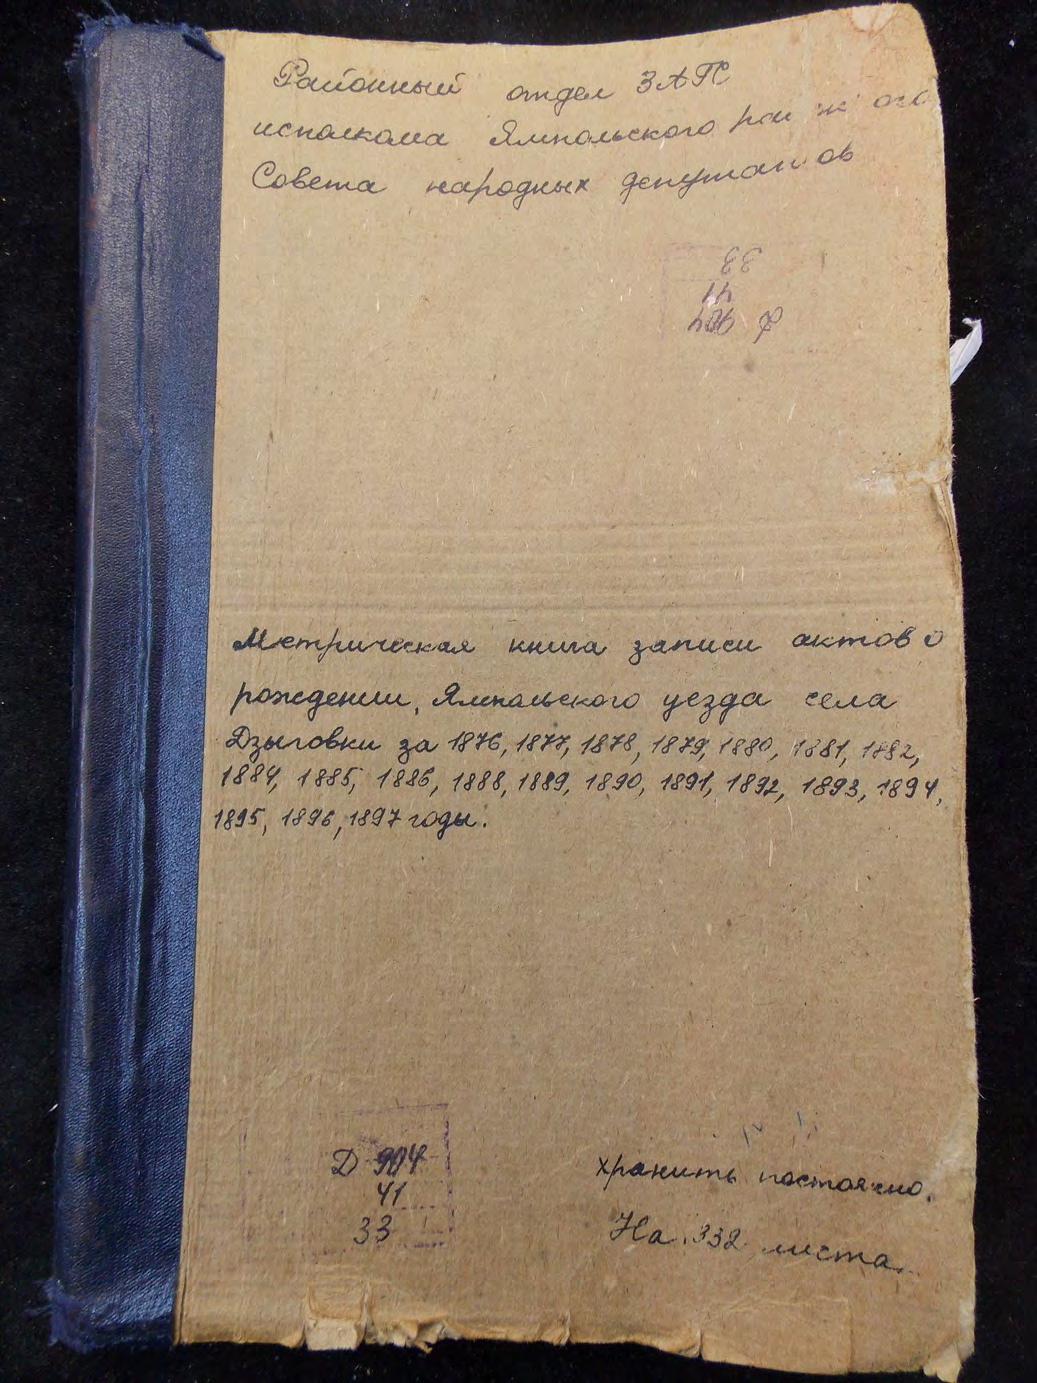 Районный отдел ЗАГС
исполкома Ямпольского
Совета народных депутатов
Метрическая книга записи актов о
рождении, Ямпольского уезда села
Дзыговки за 1876, 1877, 1878, 1879, 1880, 1881, 1882,
1884, 1885, 1886, 1888, 1889, 1890, 1891, 1892, 1893, 1894,
1895, 1896, 1897 годы.
Д 904
41
33
хранить постоянно.
На 332 листа.